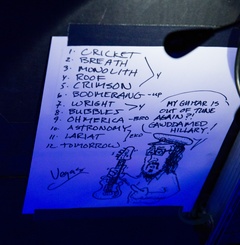 1. CRICKET
2. BREATH
3. MONOLITH
4. ROOF
5. CRIMSON
6. BOOMERANG - up
7. WRIGHT
8. BUBBLES
9. OHMERICA
10. ASTRONOMY
11. LARIAT
12. TOMORROW
MY GUITAR IS
OUT OF TUNE
AGAIN?!
GAWDDAMED
HILLARY!
Vegas